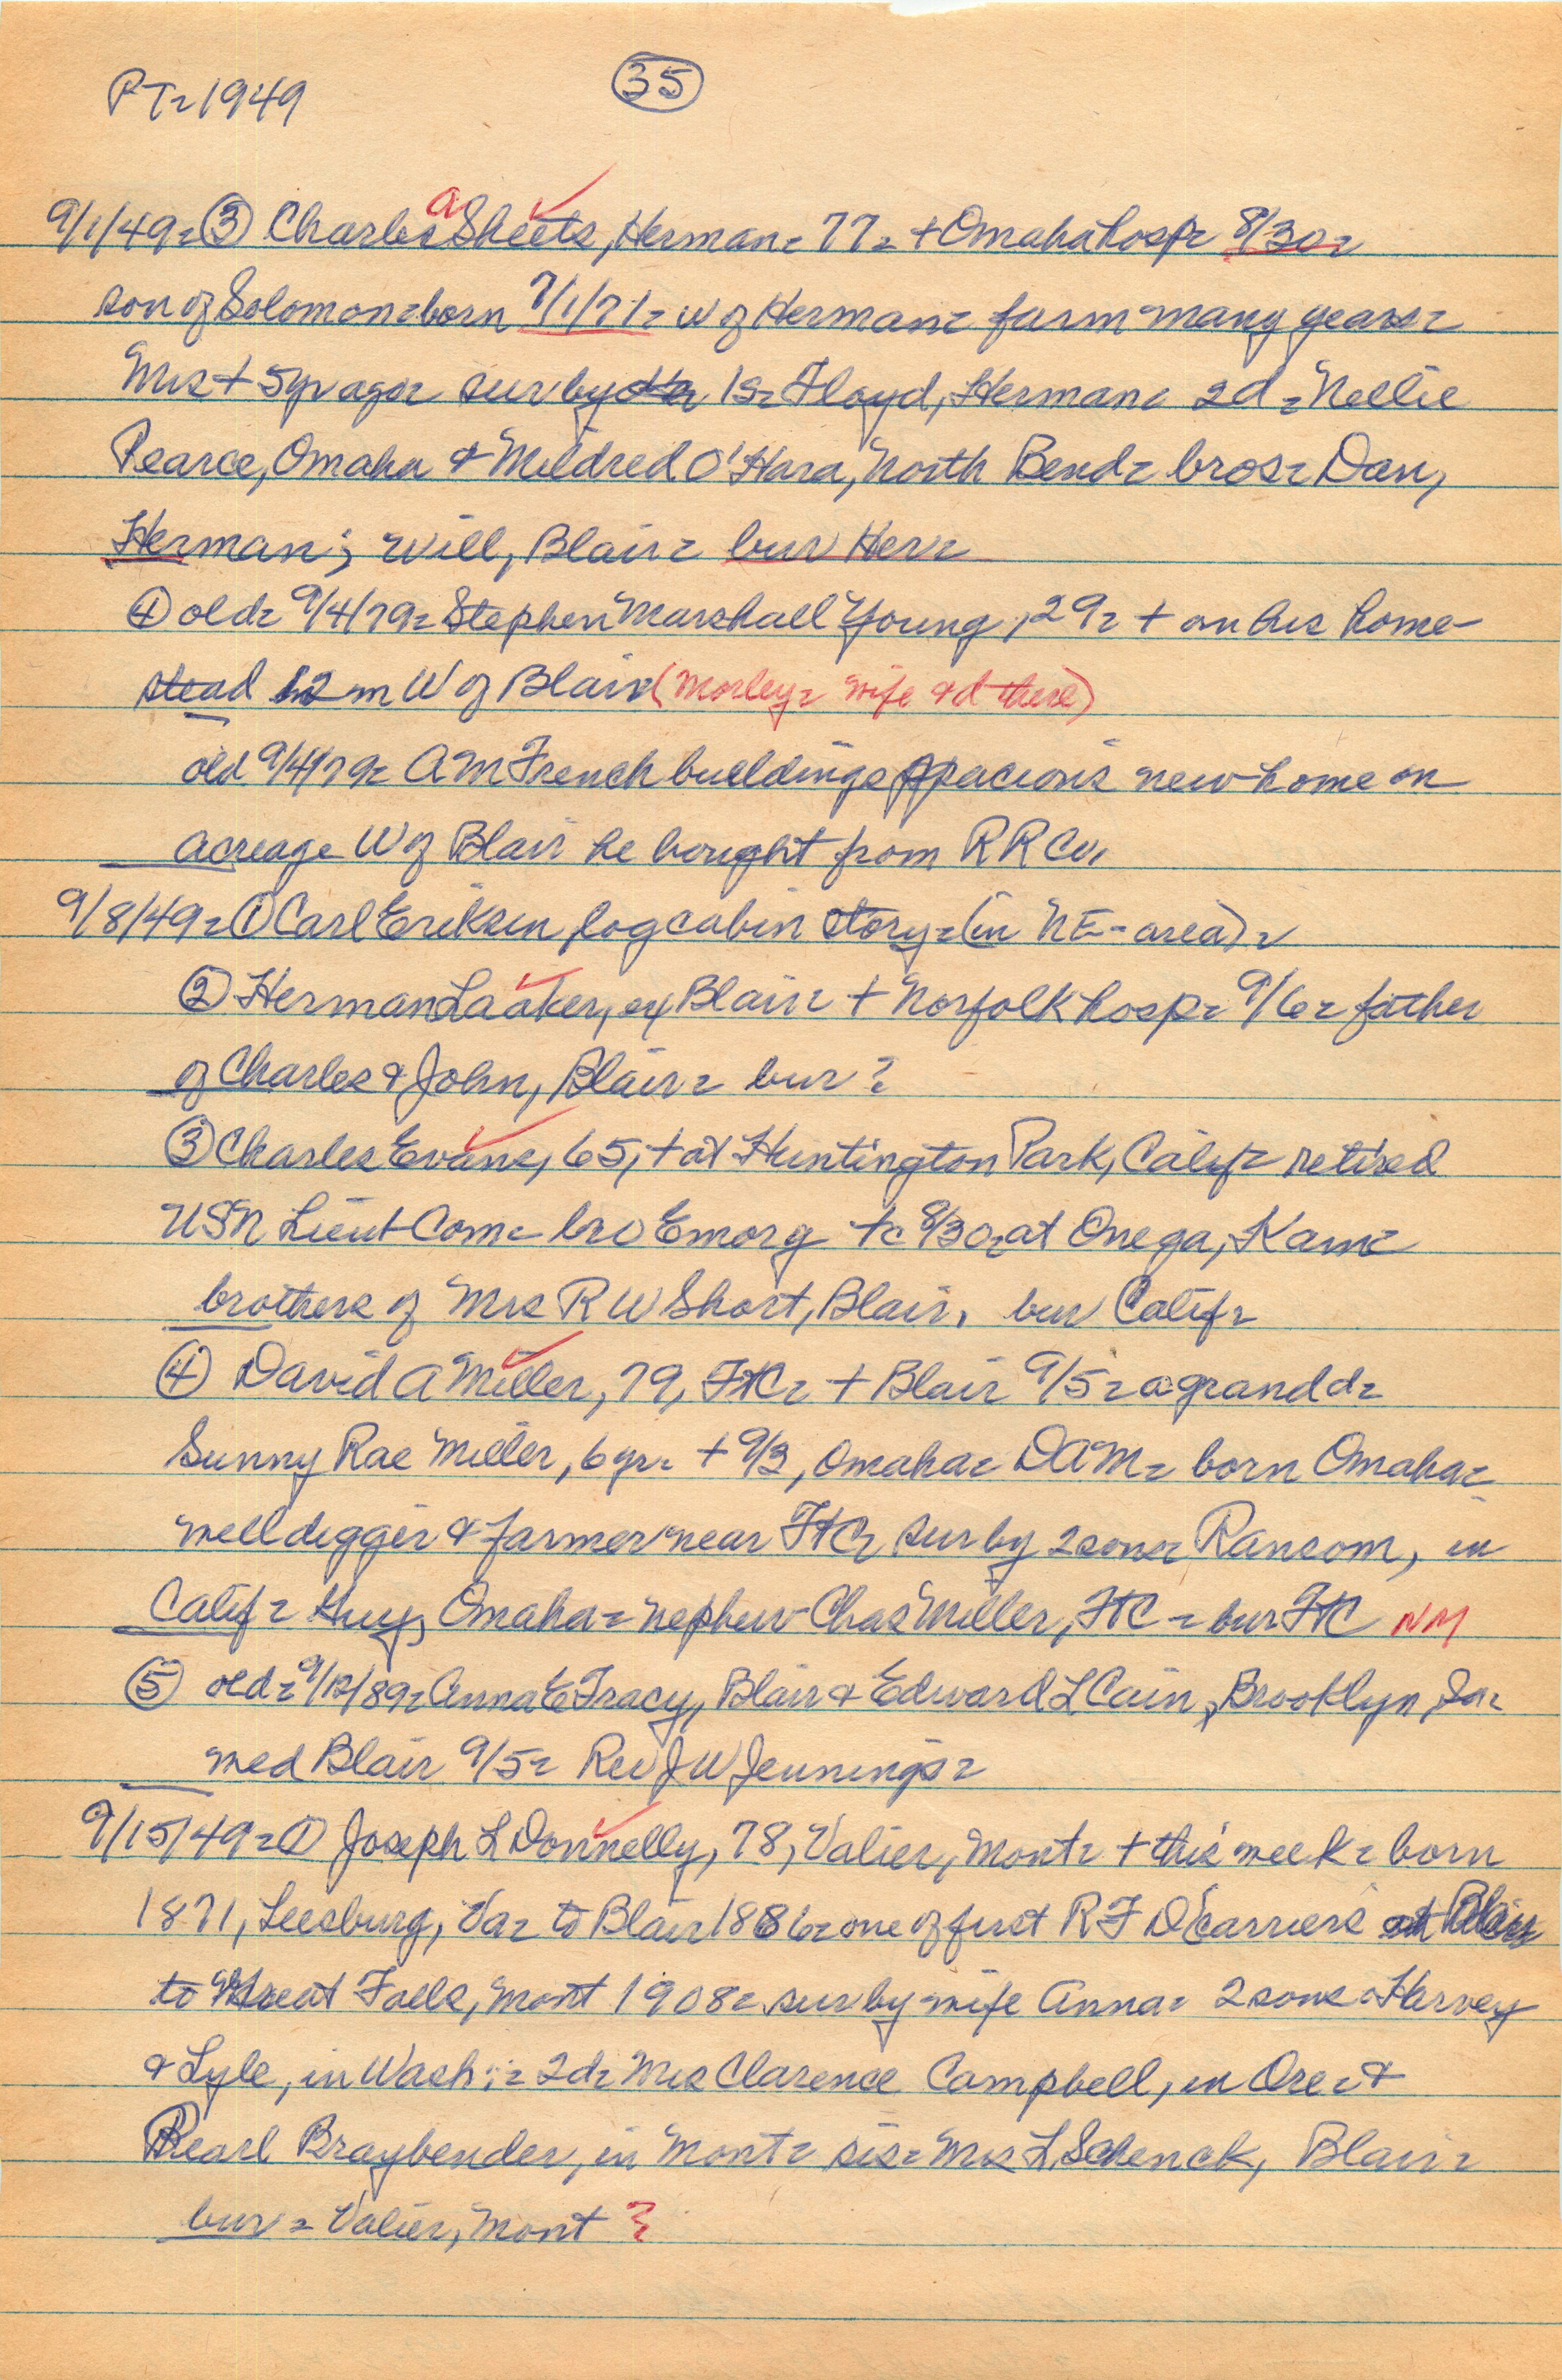 PT=1949 35
9/1/49=③ Charles a Sheets, Herman= 77= + Omaha hosp= 8/30=
son of Solomon=born 7/1/71= W of Herman= farm many years=
Mrs + 5yr ago= sur by 1s= Floyd, Herman= 2d=Nellie
Pearce, Omaha & Mildred O'Hara, North Bend= bros= Dan,
Herman; Will, Blair= bur Her=
④ old= 9/4/79= Stephen Marshall Young, 29= + on his home-
stead 2 m W of Blair (Morley= wife & d there)
old 9/4/79= A M French building spacious new home on
acreage W of Blair he bought from RR Co.
9/8/49=① Carl Eriksen, log cabin story=(in NE-area)=
② Herman Laaker, ex Blair= + Norfolk hosp= 9/6= father
of Charles & John, Blair= bur?
③ Charles Evans, 65, + at Huntington Park, Calif= retired
USN Lieut Com= bro Emory += 8/30=at Onega, Kan=
brothers of Mrs R W Short, Blair, bur Calif=
④ David A Miller, 79, FtC= + Blair 9/5=a grandd=
Sunny Rae Miller, 6 yr= + 9/3, Omaha= DAM= born Omaha=
well digger & farmer near FtC= sur by 2 sons= Ransom, in
Calif= Guy, Omaha= nephew Chas Miller, FtC= bur FtC NM
⑤ old=9/12/89=Anna E Tracy, Blair & Edward L Cain, Brooklyn, Ia=
med Blair 9/5= Rev J W Jennings=
9/15/49=① Joseph L Donnelly, 78, Valier, Mont= + this week= born
1871, Leesburg, Va= to Blair 1886=one of first RFD carriers at Blair
to Great Falls, Mont 1908= sur by wife Anna= 2 sons=Harvey
& Lyle, in Wash;= 2d= Mrs Clarence Campbell, in Ore= &
Pearl Braybender, in Mont= sis= Mrs L Schenck, Blair=
bur= Valier, Mont ?